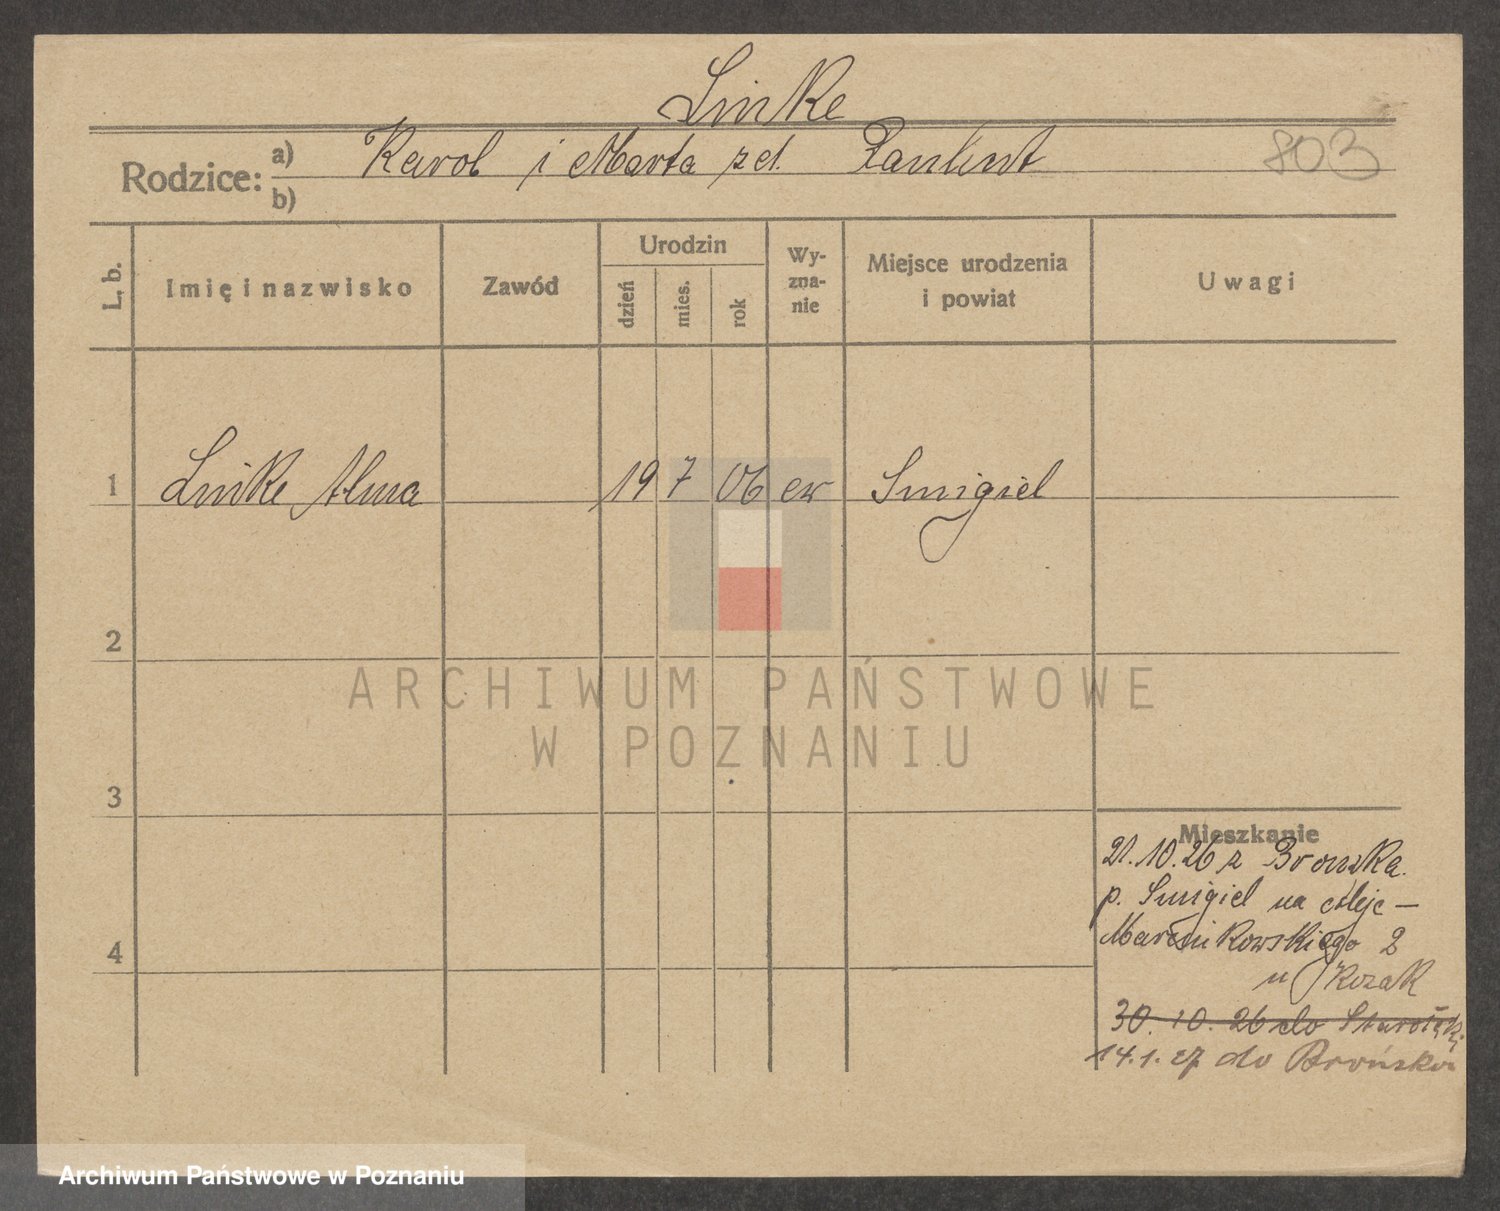 Linke
803
Rodzice:
a) Karol i Marta zd.
b)
L. b.
Imię i nazwisko
Zawód
Urodzin
dzień
mies.
rok
Wy-
zna-
nie
Miejsce urodzenia
i powiat
Uwagi
1 Linke Alma 19 7 06 ew Smigiel
2
ARCHIWUM PAŃSTWOWE
W POZNANIU
3
Mieszkanie
21.10.26 z Bronska
p. Smigiel na aleje —
Marcinkowskiego 2
4
u Kozak
30.10.26 do Starołęki
14.1.27 do Brońska
Archiwum Państwowe w Poznaniu